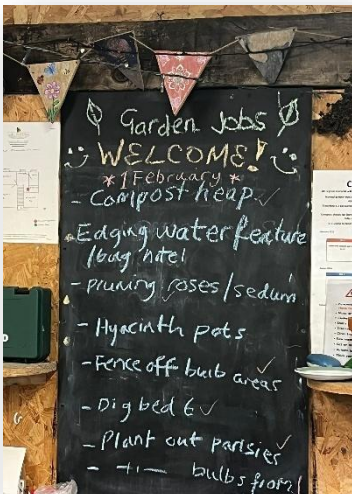 Garden Jobs
WELCOME!
*1 February*
- Compost heap ✓
- Edging water feature
/bug hotel
- Pruning roses/sedum
- Hyacinth pots
- Fence off bulb areas ✓
- Dig bed 6 ✓
- Plant out pansies ✓
- -11- bulbs from